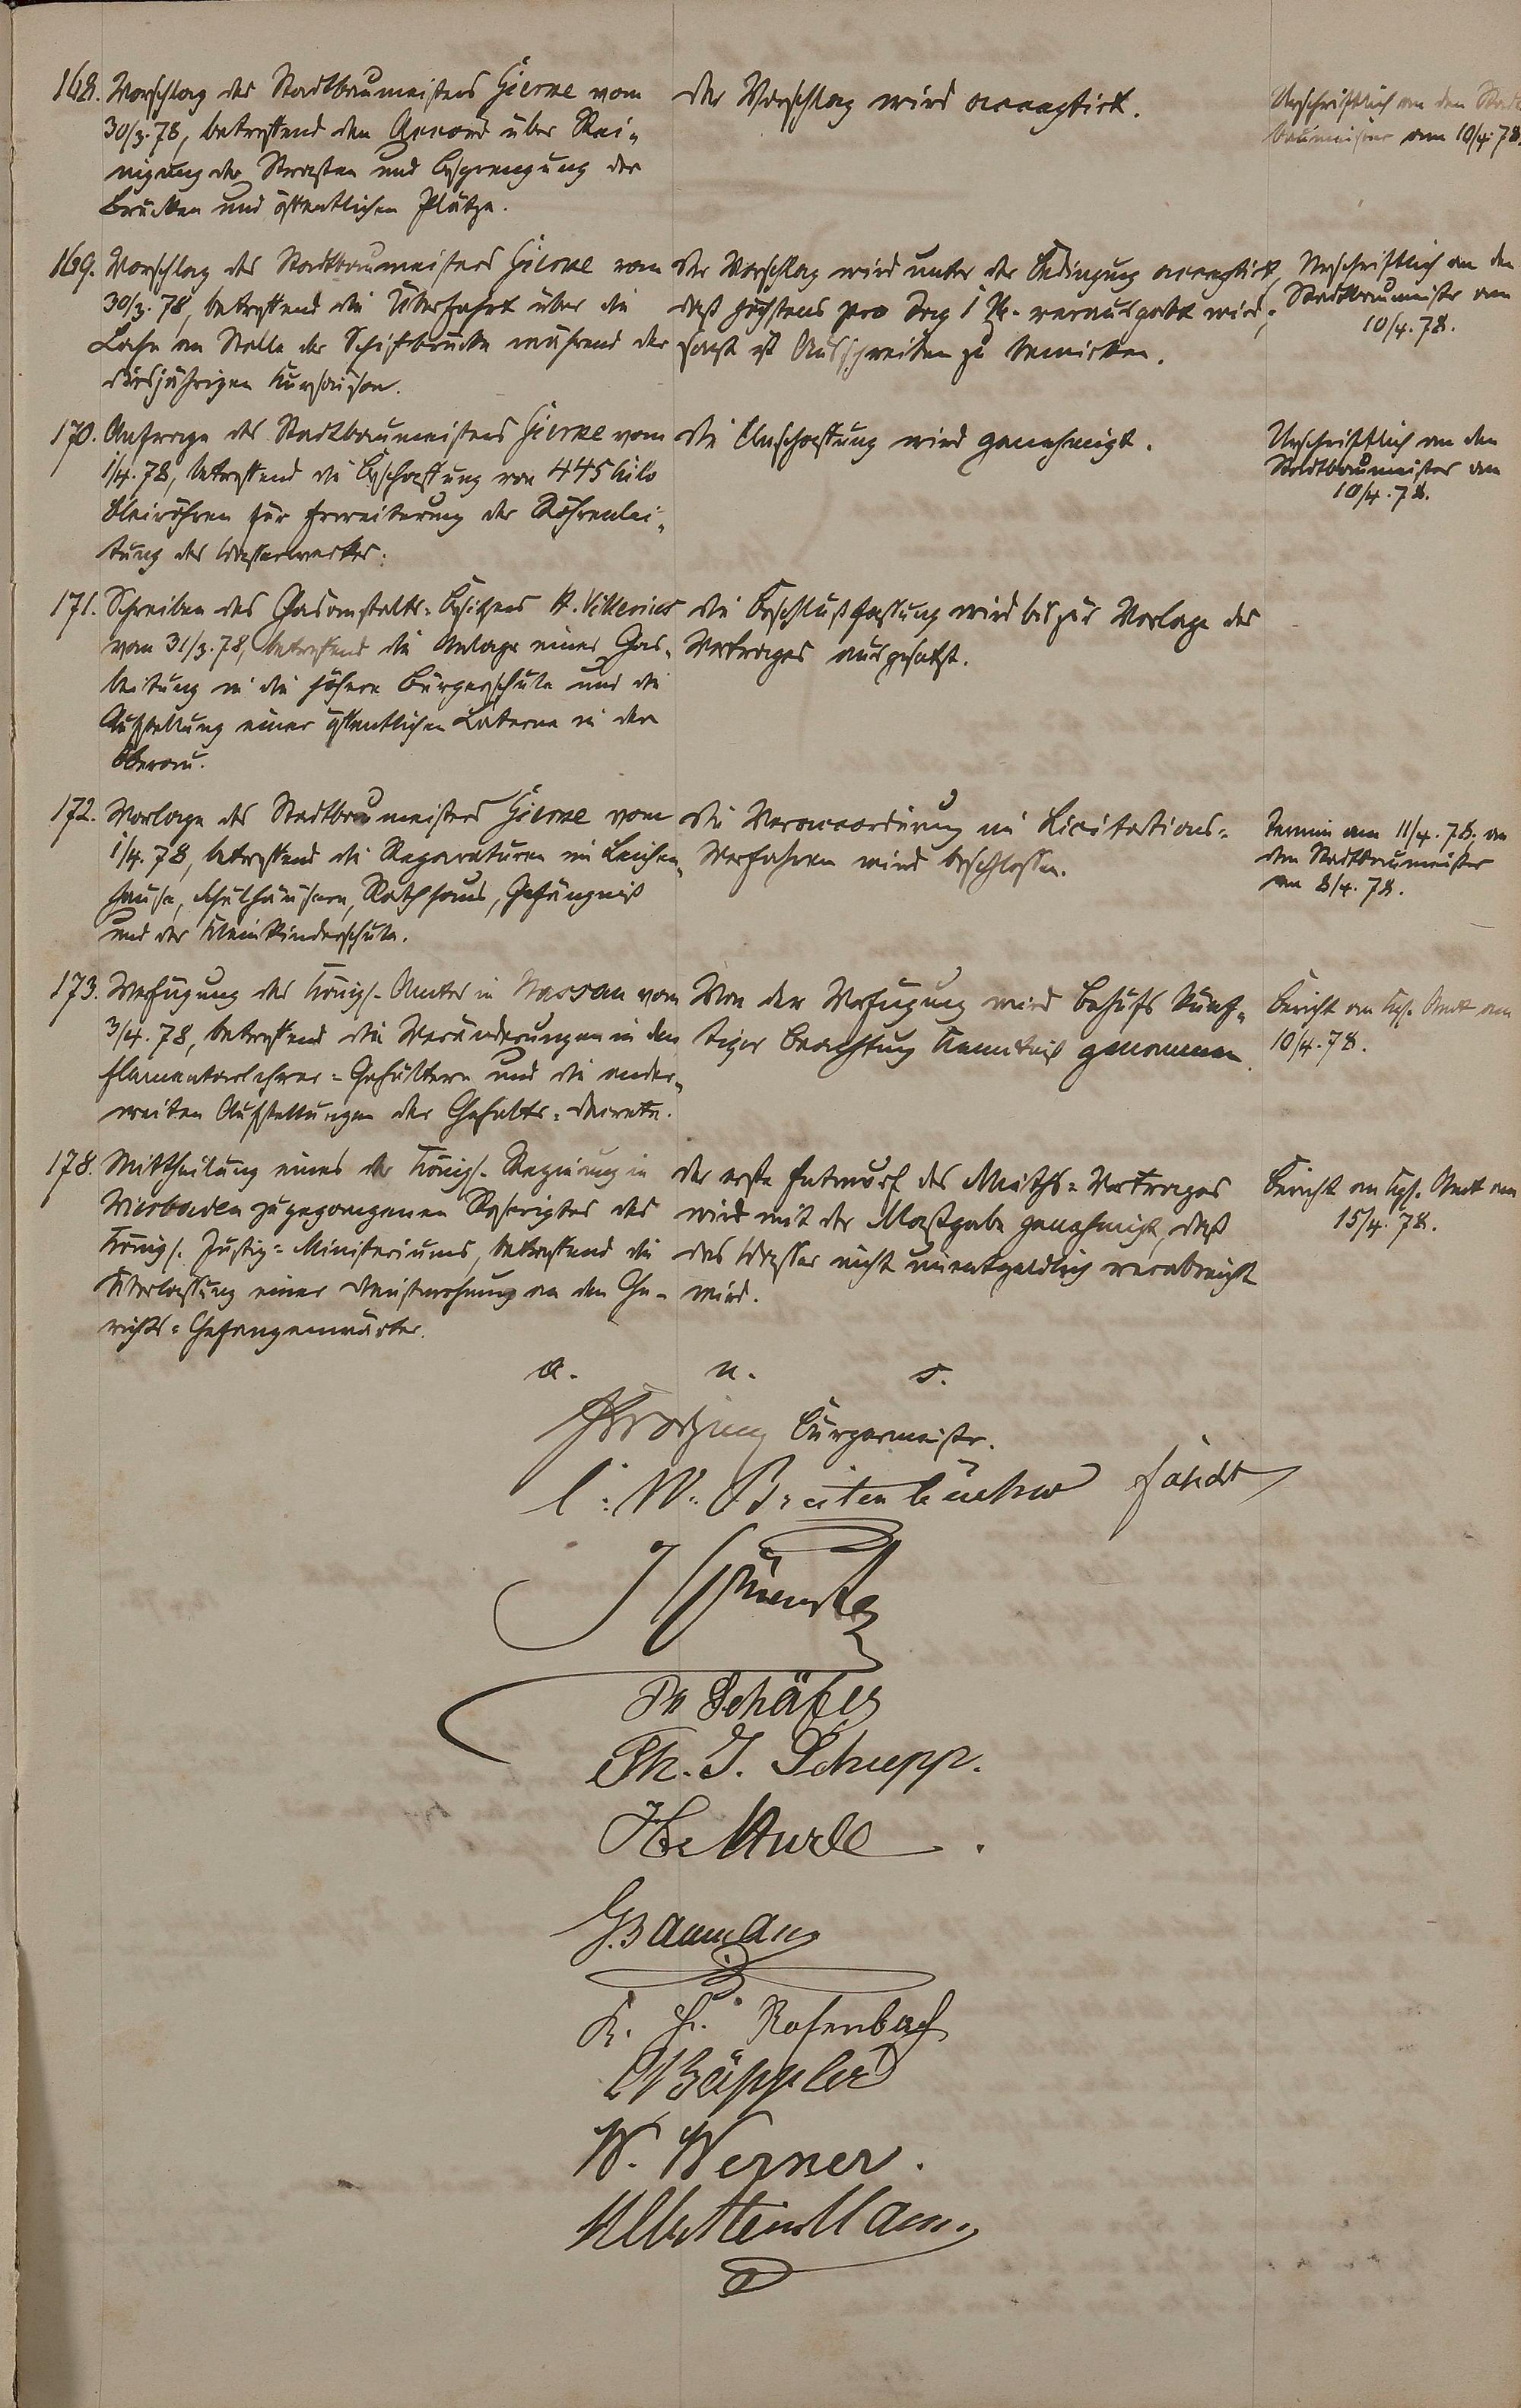 168. Vorschlag des Stadtbaumeisters Gierke vom
30/3. 78, betreffend den Accord über Rei-
nigung der Straßen und Besprengung der
Brücken und öffentlichen Plätze.
Der Vorschlag wird acceptirt.
Urschriftlich an den Stadt
baumeister am 10/4. 78.
169. Vorschlag des Stadtbaumeisters Gierke vom
30/3. 78, betreffend die Überfahrt über die
Lahn an Stelle der Schiffbrücke während der
diesjährigen Kursaison.
Der Vorschlag wird unter der Bedingung acceptirt,
daß höchstens pro Tag 1 M. verausgabt wird;
sonst ist Ausschreiben zu bewirken.
Urschriftlich an den
Stadtbaumeister am
10/4. 78.
170. Anfrage des Stadtbaumeisters Gierke vom
1/4. 78, betreffend die Beschaffung von 445 Kilo
Bleiröhren für Erweiterung der Röhrenlei-
tung des Wasserwerkes.
Die Anschaffung wird genehmigt.
Urschriftlich an den
Stadtbaumeister am
10/4. 78.
171. Schreiben des Gasanstalts-Besitzers H. Vitterius
vom 31/3. 78, betreffend die Anlage einer Gas-
leitung in die höhere Bürgerschule und die
Aufstellung einer öffentlichen Laterne in der
Oberau.
Die Beschlußfassung wird bis zur Vorlage des
Vertrages ausgesetzt.
172. Vorlage des Stadtbaumeisters Gierke vom
1/4. 78, betreffend die Reparaturen im Leichen-
hause, Schulhäusern, Rathhaus, Gefängniß
und der Kleinkinderschule.
Die Veraccordirung im Licitations-
Verfahren wird beschlossen.
Termin am 11/4. 78, an
den Stadtbaumeister
am 8/4. 78.
173. Verfügung des Königl. Amtes in Nassau vom
3/4. 78, betreffend die Veränderungen in den
Elementarlehrer-Gehältern und die ander-
weiten Aufstellungen der Gehalts-Decrete.
Von der Verfügung wird behufs künf-
tiger Beachtung Kenntniß genommen.
Bericht an Kgl. Amt am
10/4. 78.
178. Mittheilung eines der Königl. Regierung in
Wiesbaden zugegangenen Rescriptes des
Königl. Justiz-Ministeriums, betreffend die
Überlassung einer Dienstwohnung an den Ge-
richts-Gefangenwärter.
Der erste Entwurf des Mieths-Vertrages
wird mit der Maßgabe genehmigt, daß
das Wasser nicht unentgeldlich verabreicht
wird.
Bericht an Kgl. Amt am
15/4. 78.
a. u. s.
Bürgermeister.
C. W. Breitenbücher
Ph Schäfer
Ph. J. Schupp.
G. Baumann
K. H. Rosenbach
W. Werner.